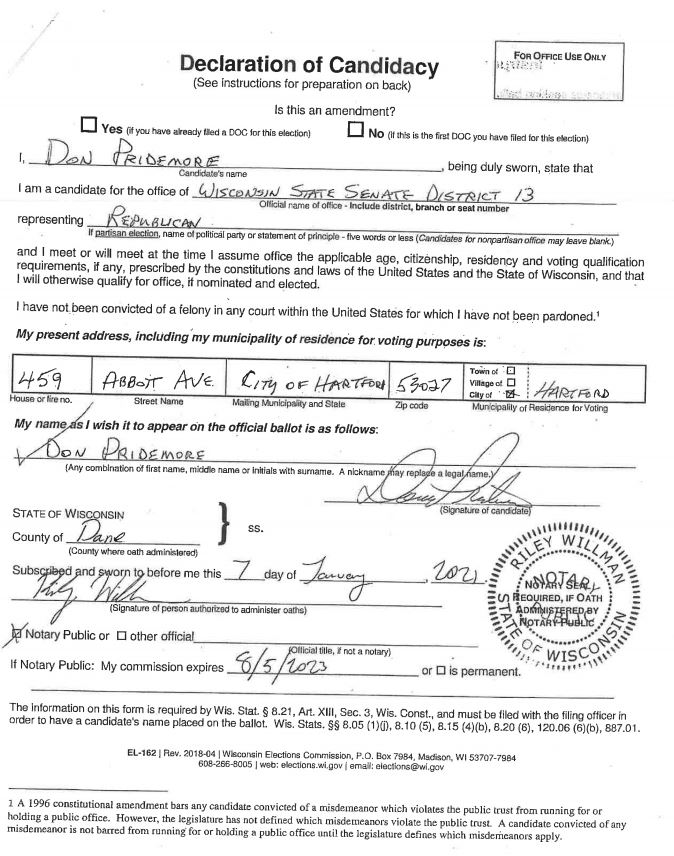 Declaration of Candidacy
(See instructions for preparation on back)
FOR OFFICE USE ONLY
Is this an amendment?
☐ Yes (if you have already filed a DOC for this election) ☐ No (if this is the first DOC you have filed for this election)
I, DON PRIDEMORE, being duly sworn, state that
Candidate's name
I am a candidate for the office of WISCONSIN STATE SENATE DISTRICT 13
Official name of office - Include district, branch or seat number
representing REPUBLICAN
If partisan election, name of political party or statement of principle - five words or less (Candidates for nonpartisan office may leave blank.)
and I meet or will meet at the time I assume office the applicable age, citizenship, residency and voting qualification
requirements, if any, prescribed by the constitutions and laws of the United States and the State of Wisconsin, and that
I will otherwise qualify for office, if nominated and elected.
I have not been convicted of a felony in any court within the United States for which I have not been pardoned.1
My present address, including my municipality of residence for voting purposes is:
459 ABBOTT AVE. CITY OF HARTFORD 53027 Town of ☐
Village of ☐
City of ☒ HARTFORD
House or fire no. Street Name Mailing Municipality and State Zip code Municipality of Residence for Voting
My name as I wish it to appear on the official ballot is as follows:
DON PRIDEMORE
(Any combination of first name, middle name or initials with surname. A nickname may replace a legal name.)
(Signature of candidate)
STATE OF WISCONSIN
County of Dane } ss.
(County where oath administered)
Subscribed and sworn to before me this 7 day of January, 2021.
(Signature of person authorized to administer oaths)
RILEY WILLMAN
NOTARY SEAL
REQUIRED, IF OATH
ADMINISTERED BY
NOTARY PUBLIC
PUBLIC
STATE OF WISCONSIN
☒ Notary Public or ☐ other official
(Official title, if not a notary)
If Notary Public: My commission expires 8/5/2023 or ☐ is permanent.
The information on this form is required by Wis. Stat. § 8.21, Art. XIII, Sec. 3, Wis. Const., and must be filed with the filing officer in
order to have a candidate's name placed on the ballot. Wis. Stats. §§ 8.05 (1)(j), 8.10 (5), 8.15 (4)(b), 8.20 (6), 120.06 (6)(b), 887.01.
EL-162 | Rev. 2018-04 | Wisconsin Elections Commission, P.O. Box 7984, Madison, WI 53707-7984
608-266-8005 | web: elections.wi.gov | email: elections@wi.gov
1 A 1996 constitutional amendment bars any candidate convicted of a misdemeanor which violates the public trust from running for or
holding a public office. However, the legislature has not defined which misdemeanors violate the public trust. A candidate convicted of any
misdemeanor is not barred from running for or holding a public office until the legislature defines which misdemeanors apply.